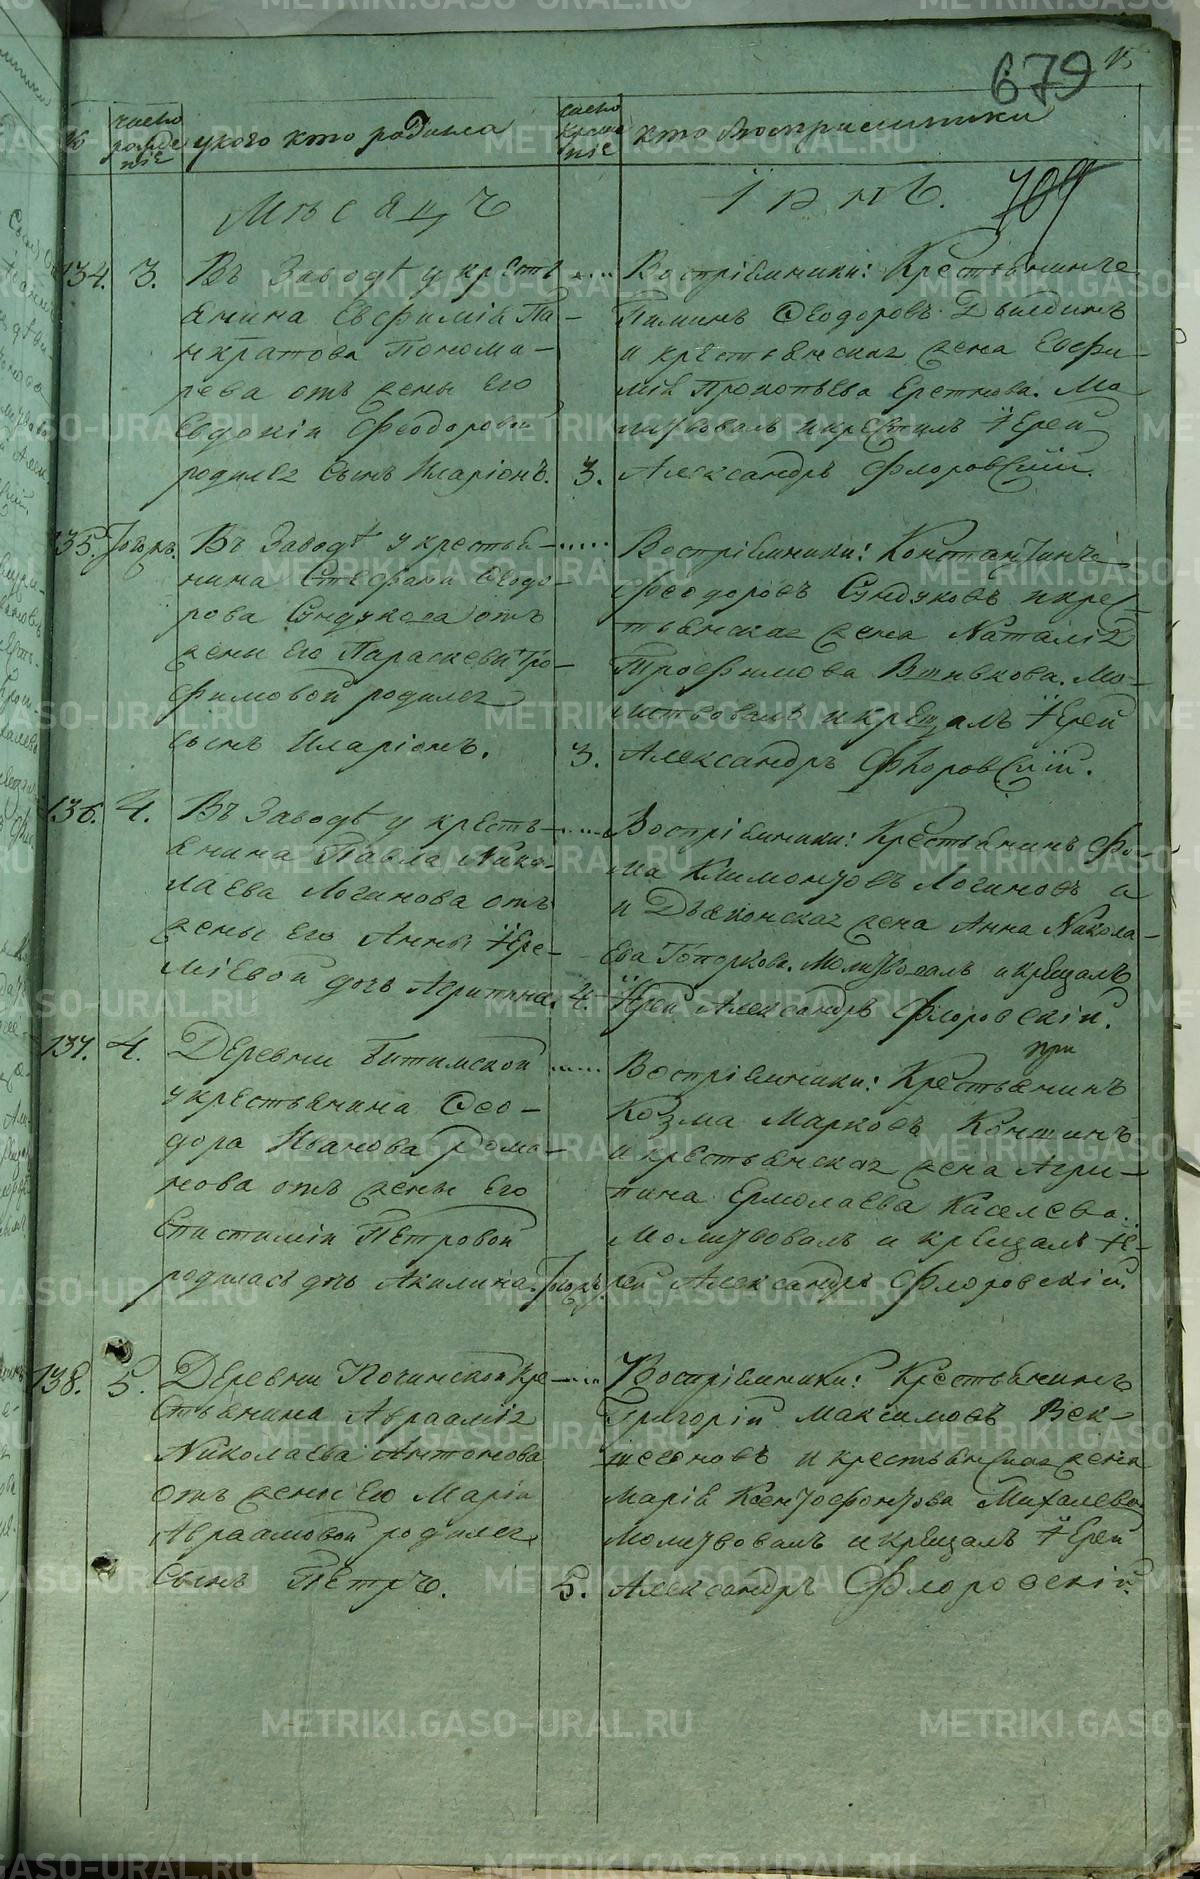 679
№
число рожде ніе
у кого кто родился
число креще ніе
кто Воспріемники
Мѣсяцъ
Іюнь.
709
134. 3.
Въ Заводѣ у кресть
янина Евфимія Па-
нкратова Понома-
рева отъ жены его
Евдокіи Феодоровой
родился сынъ Иларіонъ. 3.
Воспріемники: Крестьянинъ
Пименъ Ѳеодоровъ
и крестьянская жена Евфи-
мія Прокопьева Еретнова. Мо
литвовалъ и крестилъ Іерей
Александръ Флоровскій.
135. Тогожъ.
Въ Заводѣ у крестья-
нина Стефана Ѳеодо-
рова Сундукова отъ
жены его Параскевы Тро-
фимовой родился
сынъ Иларіонъ. 3.
Воспріемники: Константинъ
Феодоровъ Сундуковъ и крес-
тьянская жена Наталія
Трофимова Втивкова. Мо-
литвовалъ и крещалъ Іерей
Александръ Флоровскій.
136. 4.
Въ Заводѣ у кресть-
янина Павла Нико-
лаева Логинова отъ
жены его Анны Іере-
міевой дочь Агрипина. 4.
Воспріемники: Крестьянинъ Фо-
ма Климонтовъ Логиновъ и
и Дьяконская жена Анна Никола-
ева Топоркова. Молитвовалъ и крещалъ
Іерей Александръ Флоровскій.
137. 4.
Деревни Битимской
у крестьянина Ѳео-
дора Иванова Рома-
нова отъ жены его
Епистиміи Петровой
родилась дочь Акилина. Тогожъ.
при
Воспріемники: Крестьянинъ
Козма Марковъ Коншинъ
и крестьянская жена Агри-
пина Ермолаева Киселева.
Молитвовалъ и крещалъ Іе-
рей Александръ Флоровскій.
138. 5.
Деревни Починской кре-
стьянина Авраамія
Николаева Антонова
отъ жены его Маріи
Авраамовой родился
сынъ Петръ. 5.
Воспріемники: Крестьянинъ
Григорій Максимовъ Век-
шегоновъ и крестьянская жена
Марія Ксентофонтова Михалева
Молитвовалъ и крещалъ Іерей
Александръ Флоровскій.
METRIKI.GASO-URAL.RU